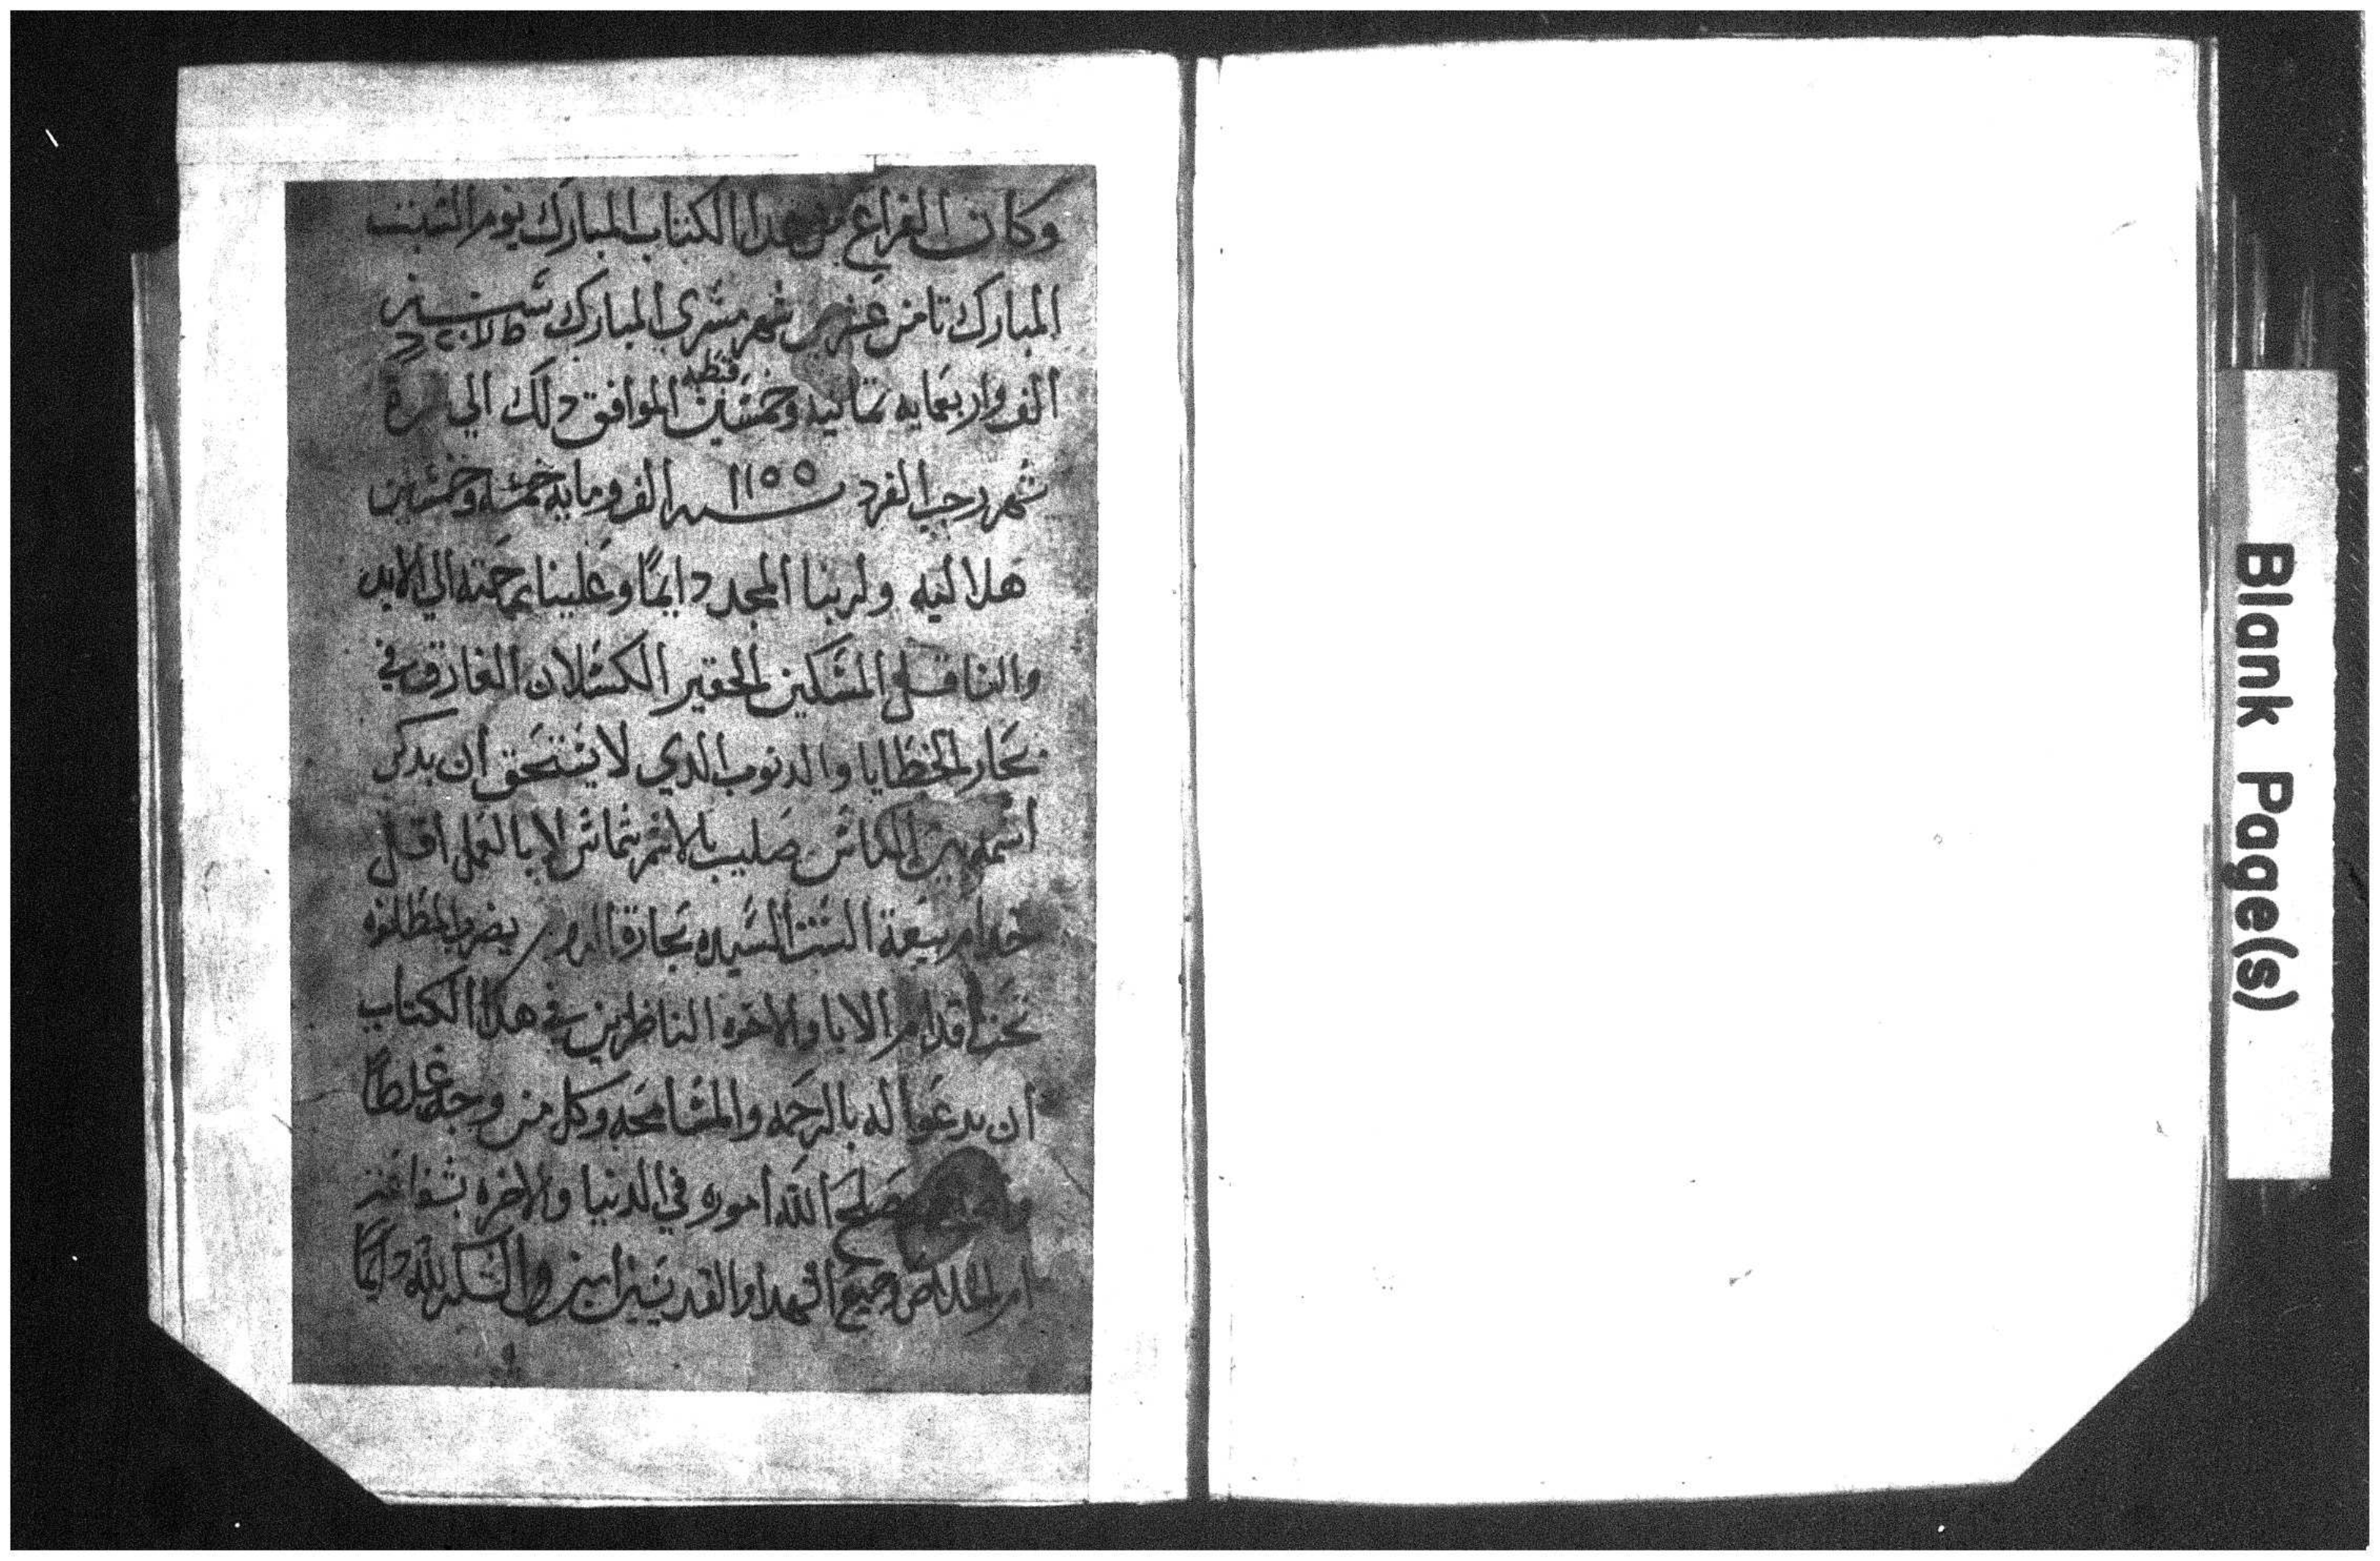 وكان الفراغ من هدا الكتاب المبارك يوم السبت
المبارك تامن عشر شهر مسري المبارك سنة
الف واربعمايه تمانيه وخمسين قبطيه الموافق دلك الي غرة
شهر رجب الفرد سنة ١١٥٥ الف ومايه خمسه وخمسين
هلاليه ولربنا المجد دايمًا وعلينا رحمته الي الابد
والناقل المسكين الحقير الكسلان الغارق في
بحار الخطايا والدنوب الدي لا يستحق ان يدكر
اسمه بين الناس صليب بالاسم شماس لا بالعمل اقل
خدام بيعة الست السيده بحارة الروم يضرب المطانوه
تحت اقدام الابا والاخوه الناظرين في هدا الكتاب
ان يدعوا له بالرحمه والمسامحه وكل من وجد غلطًا
واصلحه يصلح الله اموره في الدنيا والاخره بشفاعة
ام الخلاص وجميع الشهدا والقديسين امين والشكر لله دايمًا
Blank Page(s)